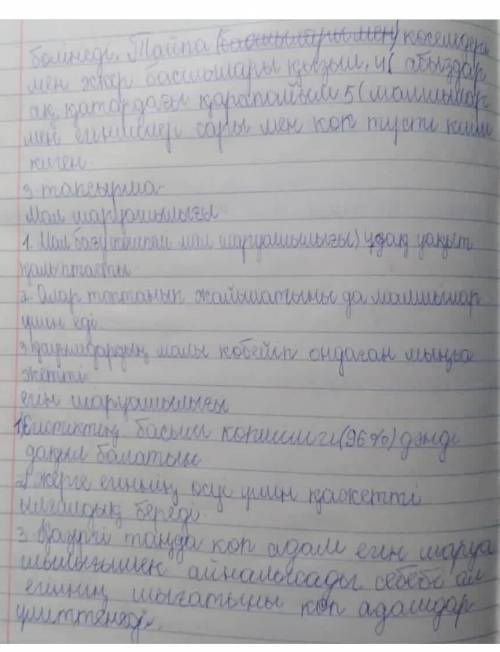 бөлінеді. Тайпа (басшылары мен) көсемдері
мен жер басшылары қызыл, 4( абыздар
ақ, қатардағы қарапайым 5( малшылар
мен егіншілер сары мен көк түсті киім
киген.
3-тапсырма
Мал шаруашылығы
1. Мал бағу мал шаруашылығы) ұзақ уақыт
қалыптасты
2. Олар да малшылар
үшін еді
3. дауылдардың малы көбейіп ондаған мыңға
жетті
егін шаруашылығы
1. Егістіктің басым көпшілігі (96%) дәнді
дақыл болатын
2. жерге егіннің өсуі үшін қажетті
ылғалдық береді.
3. Қазіргі таңда көп адам егін шаруа
шылығымен айналысады себебі ол
егіннің шығатыны көп адамдар
үміттенеді.